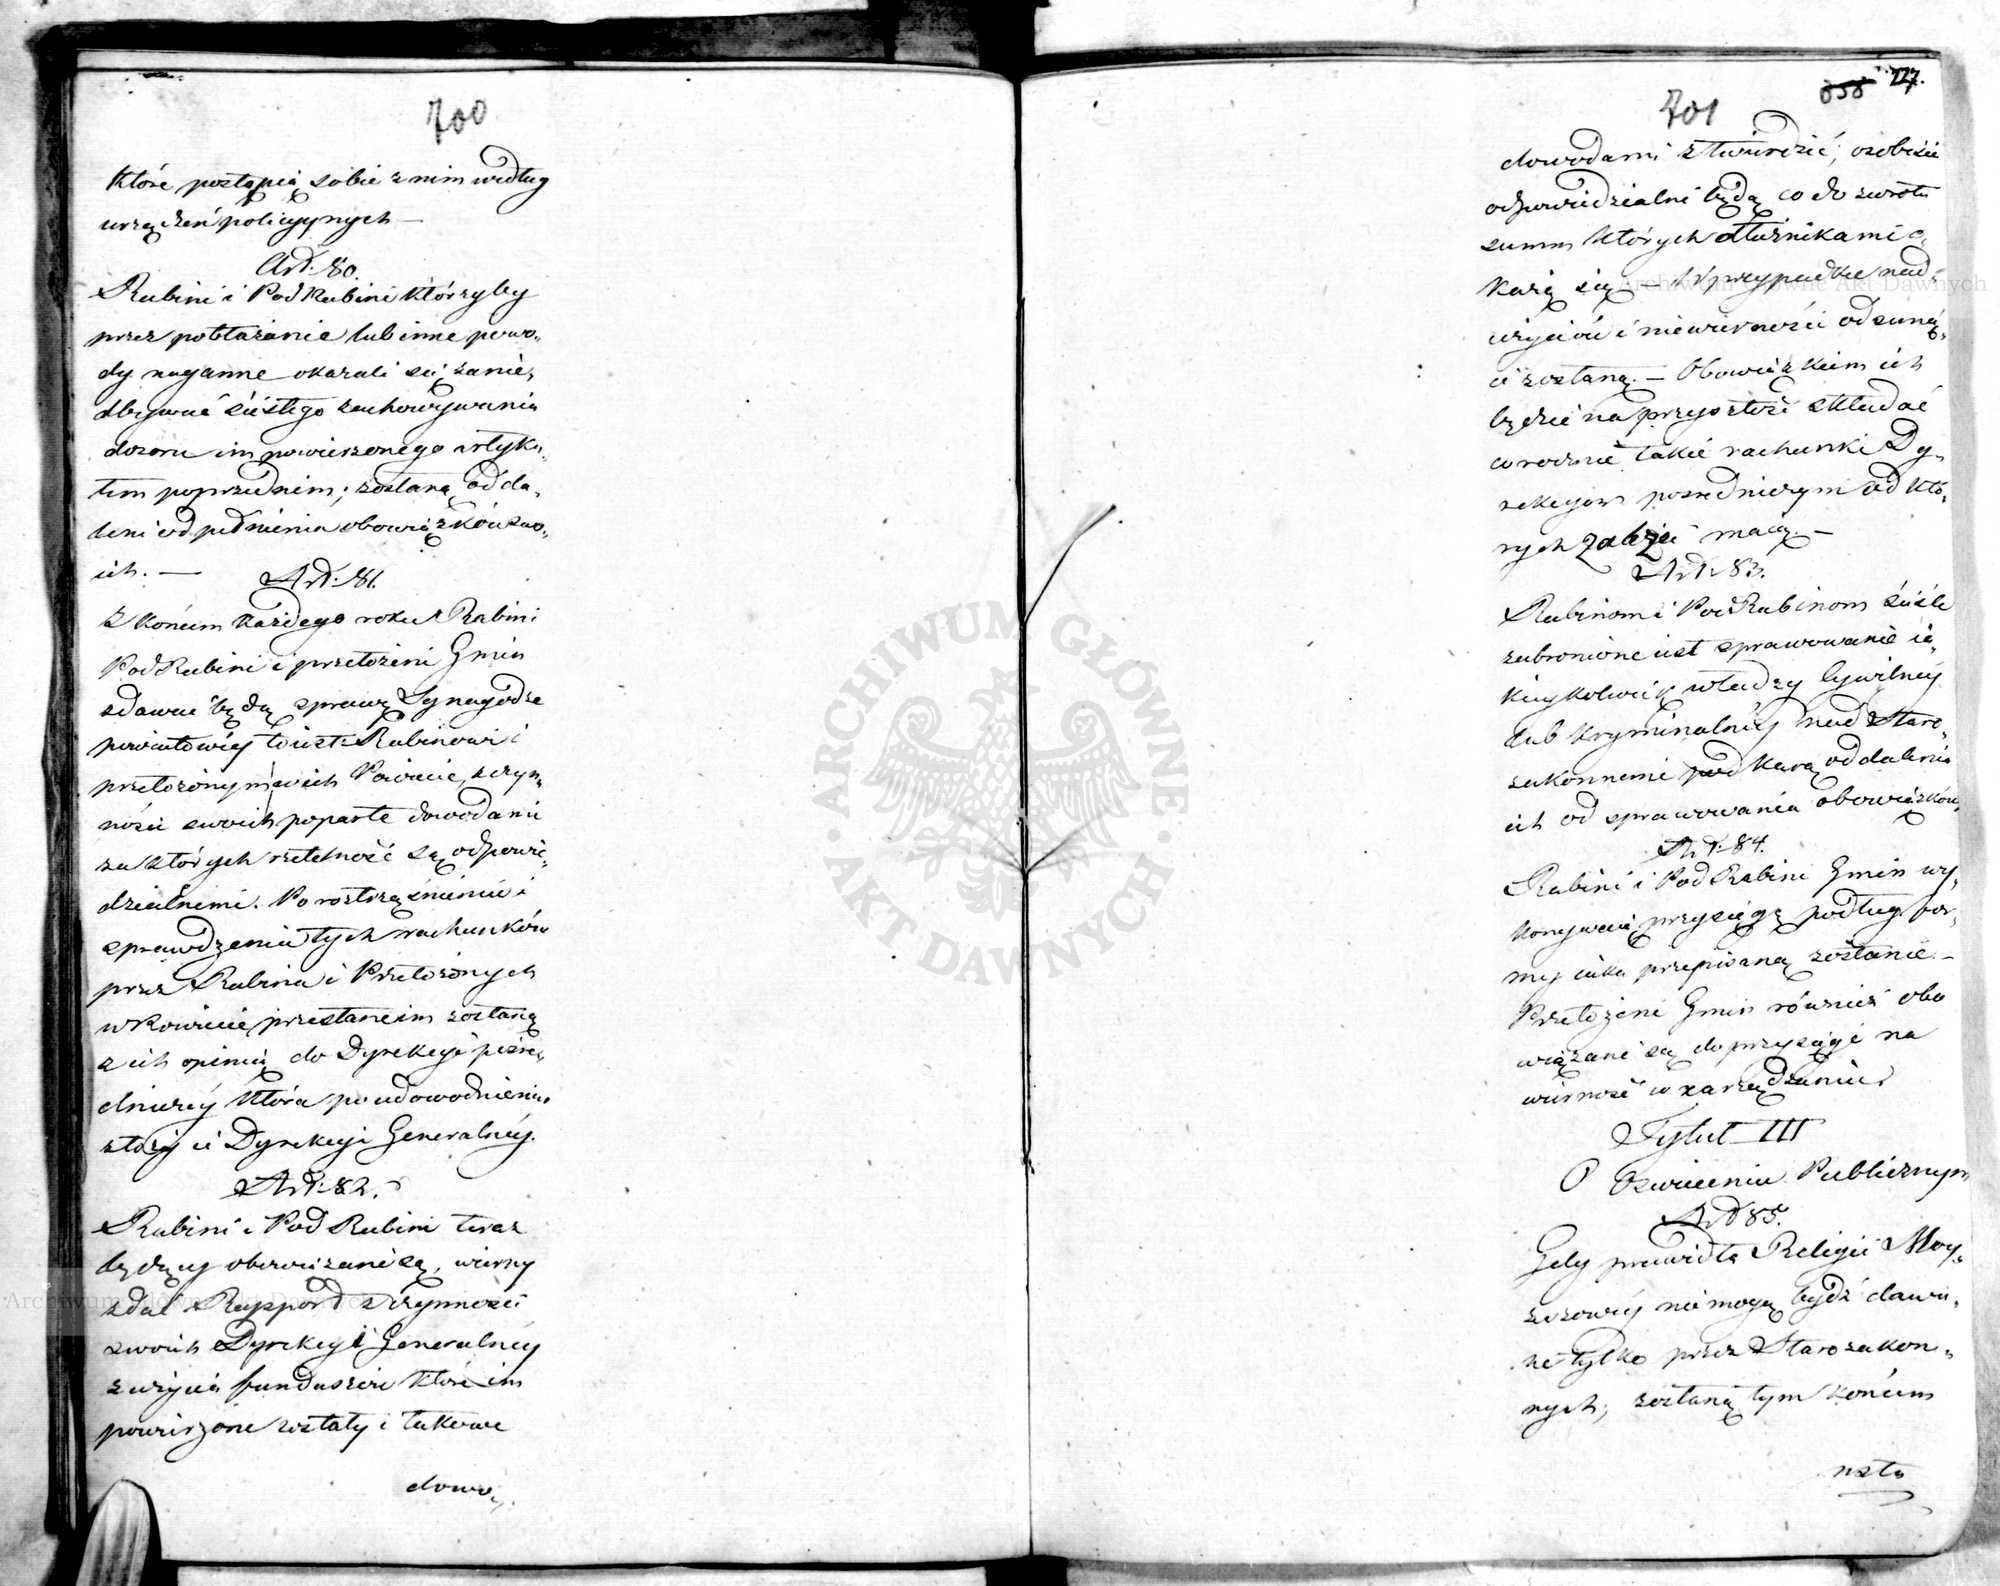 700
które postąpią sobie z nim według
urządzeń policyynych —
Art: 80.
Rabini i PodRabini którzyby
przez pobłażanie lub inne powo„
dy naganne okazali się zanie„
dbywać ścisłego zachowywania
dozoru im powierzonego artyku„
łem poprzednim; zostaną odda„
leni od pełnienia obowiązków swo„
ich. —
Art: 81.
Z końcem każdego roku Rabini
PodRabini i przełożeni Gmin
zdawać będą sprawę Synagodze
powiatowéy to iest: Rabinowi i
przełożonym w ich Powiecie, z czyn„
ności swoich poparte dowodami
za których rzetelność są odpowie„
dzialnemi. Po roztrząśnieniu i
sprawdzeniu tych rachunków
przez Rabina i Przełożonych
w Powiecie, przesłanem zostaną
z ich opinią do Dyrekcyi pośre„
dniczéy która po udowodnieniu
złoży ie Dyrekcyi Generalnéy.
Art: 82.
Rabini i PodRabini teraz
będący obowiązani są, wierny
zdać Rapport z czynności
swoich Dyrekcyi Generalnéy
z użycia funduszów które im
powierzone zostały i takowe
dowo„
701
858 227.
dowodami ztwierdzić; osobiście
odpowiedzialni będą co do zwrotu
summ których dłużnikami o„
każą się — W przypadku nad„
użyciów i niewierności odsunię„
ci zostaną. — Obowiązkiem ich
będzie na przyszłość składać
corocznie takie rachunki Dy„
rekcyom pośredniczym od któ„
rych zależeć maią —
Art: 83.
Rabinom i PodRabinom ściśle
zabronione iest sprawowanie ia„
kieykolwiek władzy Cywilnéy
lub Kryminalnéy nad Staro„
zakonnemi pod karą oddalenia
ich od sprawowania obowiązków
Art: 84.
Rabini i PodRabini Gmin wy„
konywać przysięgę podług for„
my iaka przepisaną zostanie. —
Przełożeni Gmin również obo
wiązani są do przysięgi na
wierność w zarządzaniu.
Tytuł III
O Oświeceniu Publicznym
Art 85.
Gdy prawidła Religii Moy„
żeszowéy nie mogą bydź dawa„
ne tylko przez Starozakon„
nych; zostaną tym końcem
usta
ARCHIWUM GŁÓWNE AKT DAWNYCH
Archiwum Główne Akt Dawnych
Archiwum Główne Akt Dawnych